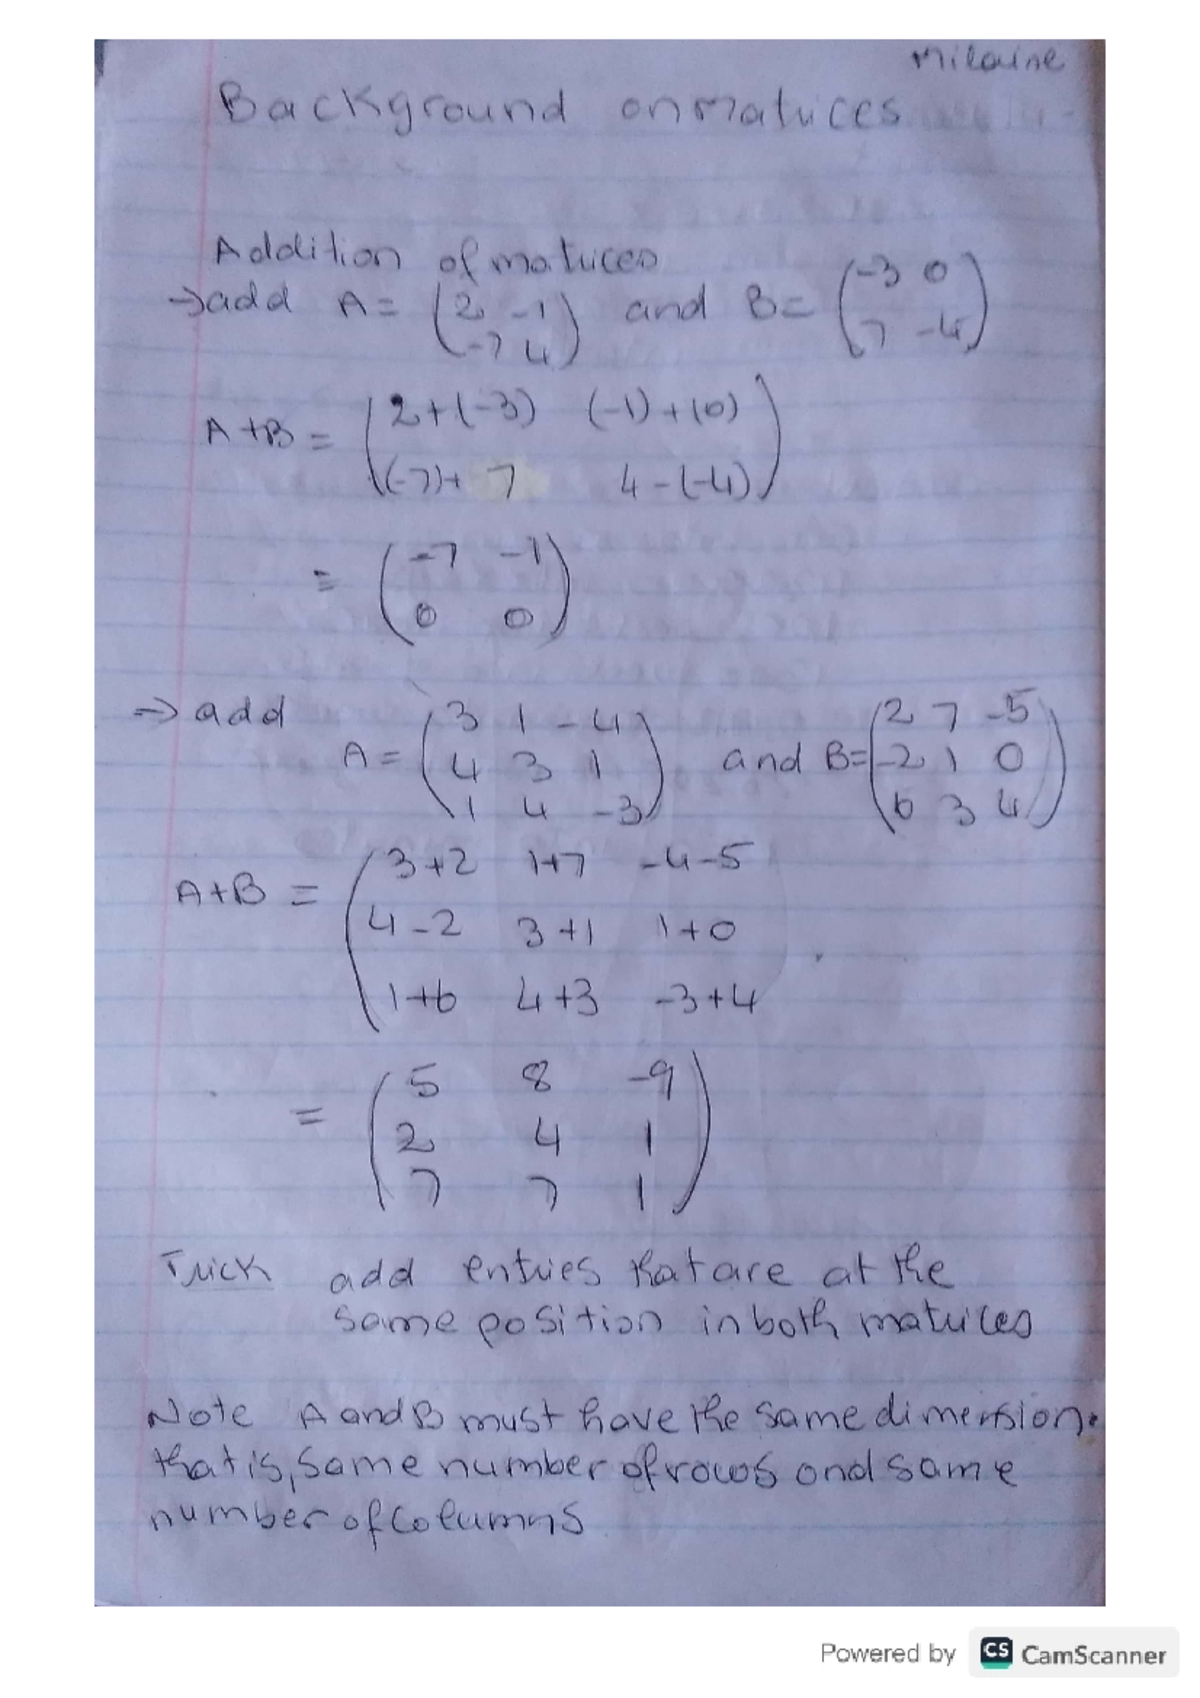 Milaine
Background on Matrices
Addition of matrices
→ add A = (2 -1) and B = (-3 0)
(-7 4) (7 -4)
A+B = (2+(-3) (-1)+(0))
((-7)+ 7 4-(-4))
= (-7 -1)
(0 0)
→ add
A = (3 1 -4) and B = (2 7 -5)
(4 3 1) (-2 1 0)
(1 4 -3) (6 3 4)
A+B = (3+2 1+7 -4-5
4-2 3+1 1+0
1+6 4+3 -3+4
= (5 8 -9)
(2 4 1)
(7 7 1)
Trick add entries that are at the
same position in both matrices
Note A and B must have the same dimension.
that is, same number of rows and same
number of columns
Powered by CS CamScanner